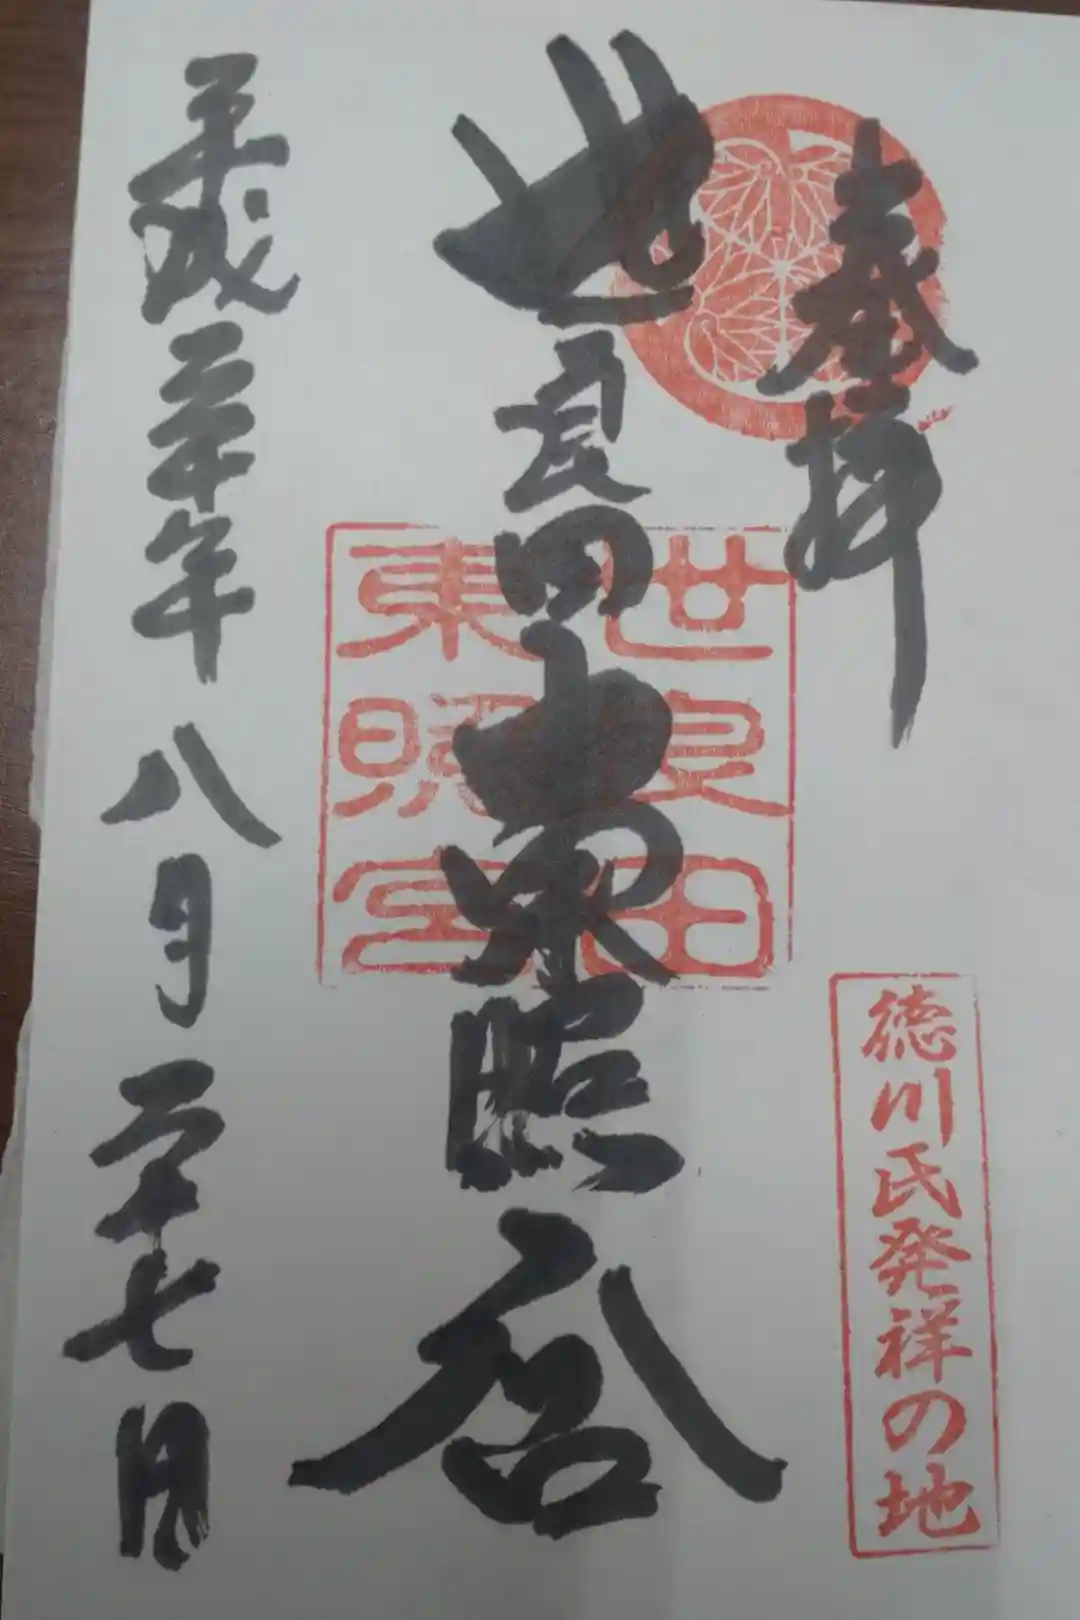 奉拝
徳川氏発祥の地
世良田東照宮
世良田
東照宮
平成三十年八月二十七日